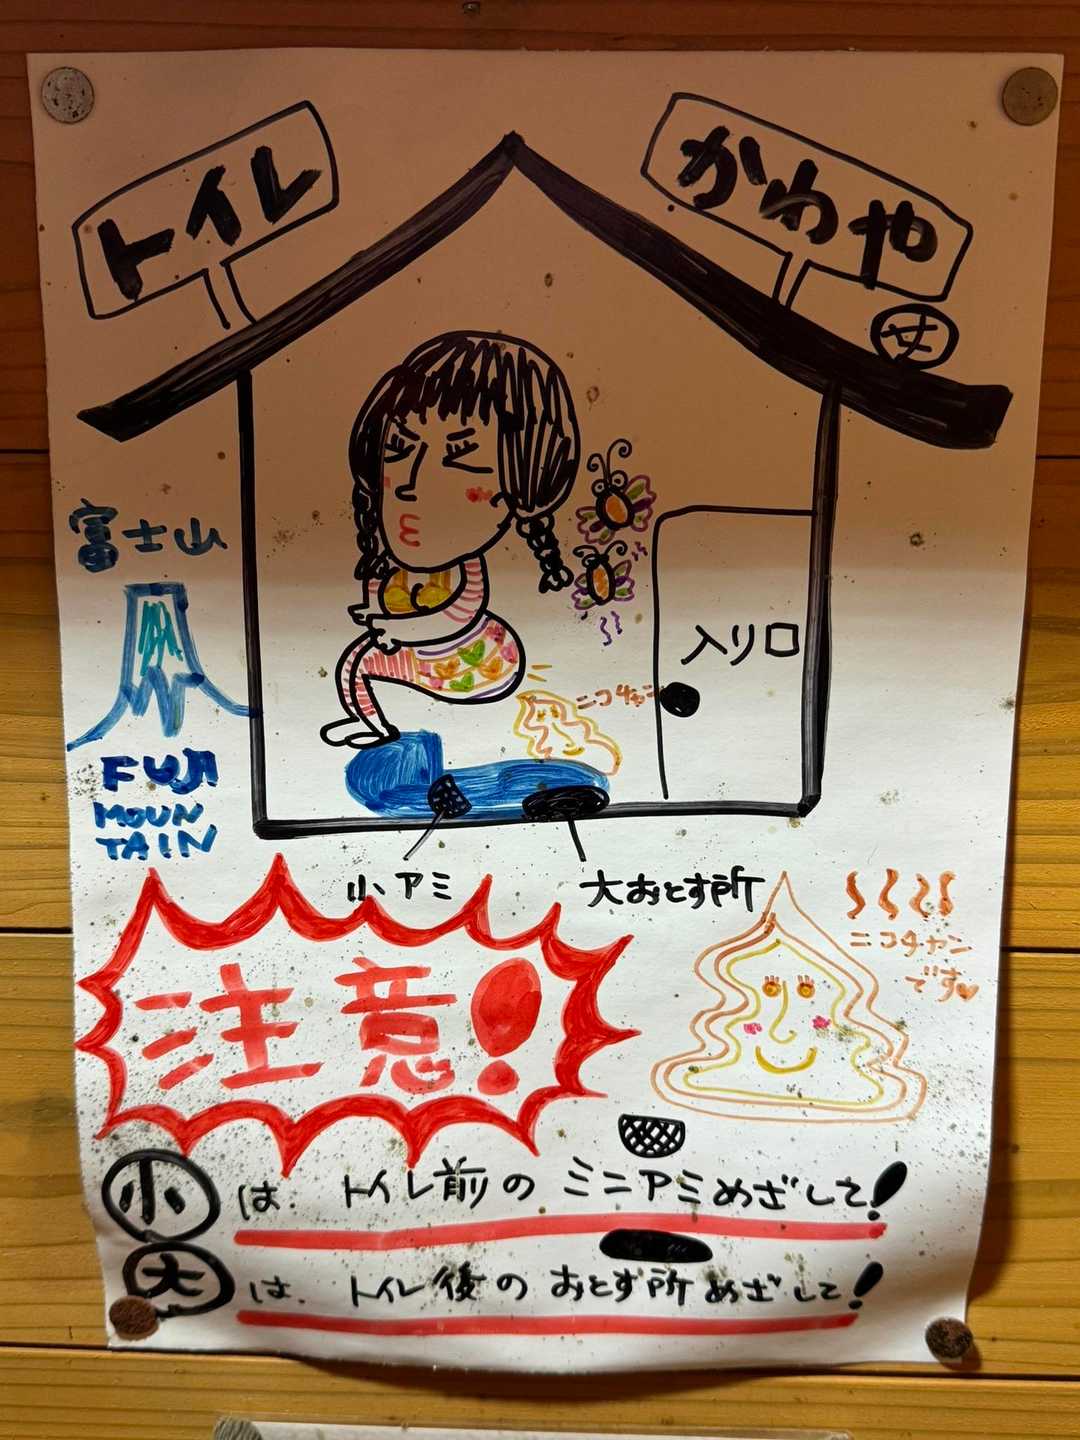 トイレ
かわや
女
富士山
FUJI
MOUN
TAIN
ニコチャン
入り口
小アミ
大おとす所
注意!
ニコチャン
です♥
小は、トイレ前のミニアミめざして!
大は、トイレ後のおとす所めざして!